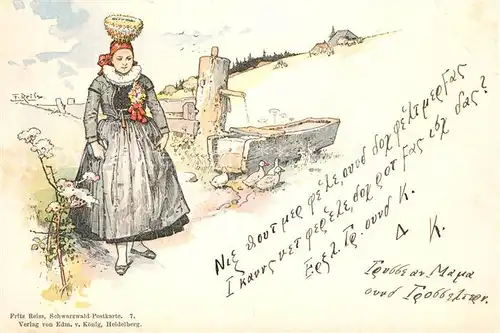 F. Reiss
Νιξ θουτ μερ φελε, ουνδ δοχ φελτ μερ Γας
Ι καννς νετ φερζελε, δοχ ροτ Γας ιχ δας?
Ερζλ. Γρ. ουνδ Κ.
Δ Κ.
Γρυσσε αν Μαμα
ουνδ Γροσσελτερν.
Fritz Reiss, Schwarzwald-Postkarte. 7.
Verlag von Edm. v. König, Heidelberg.